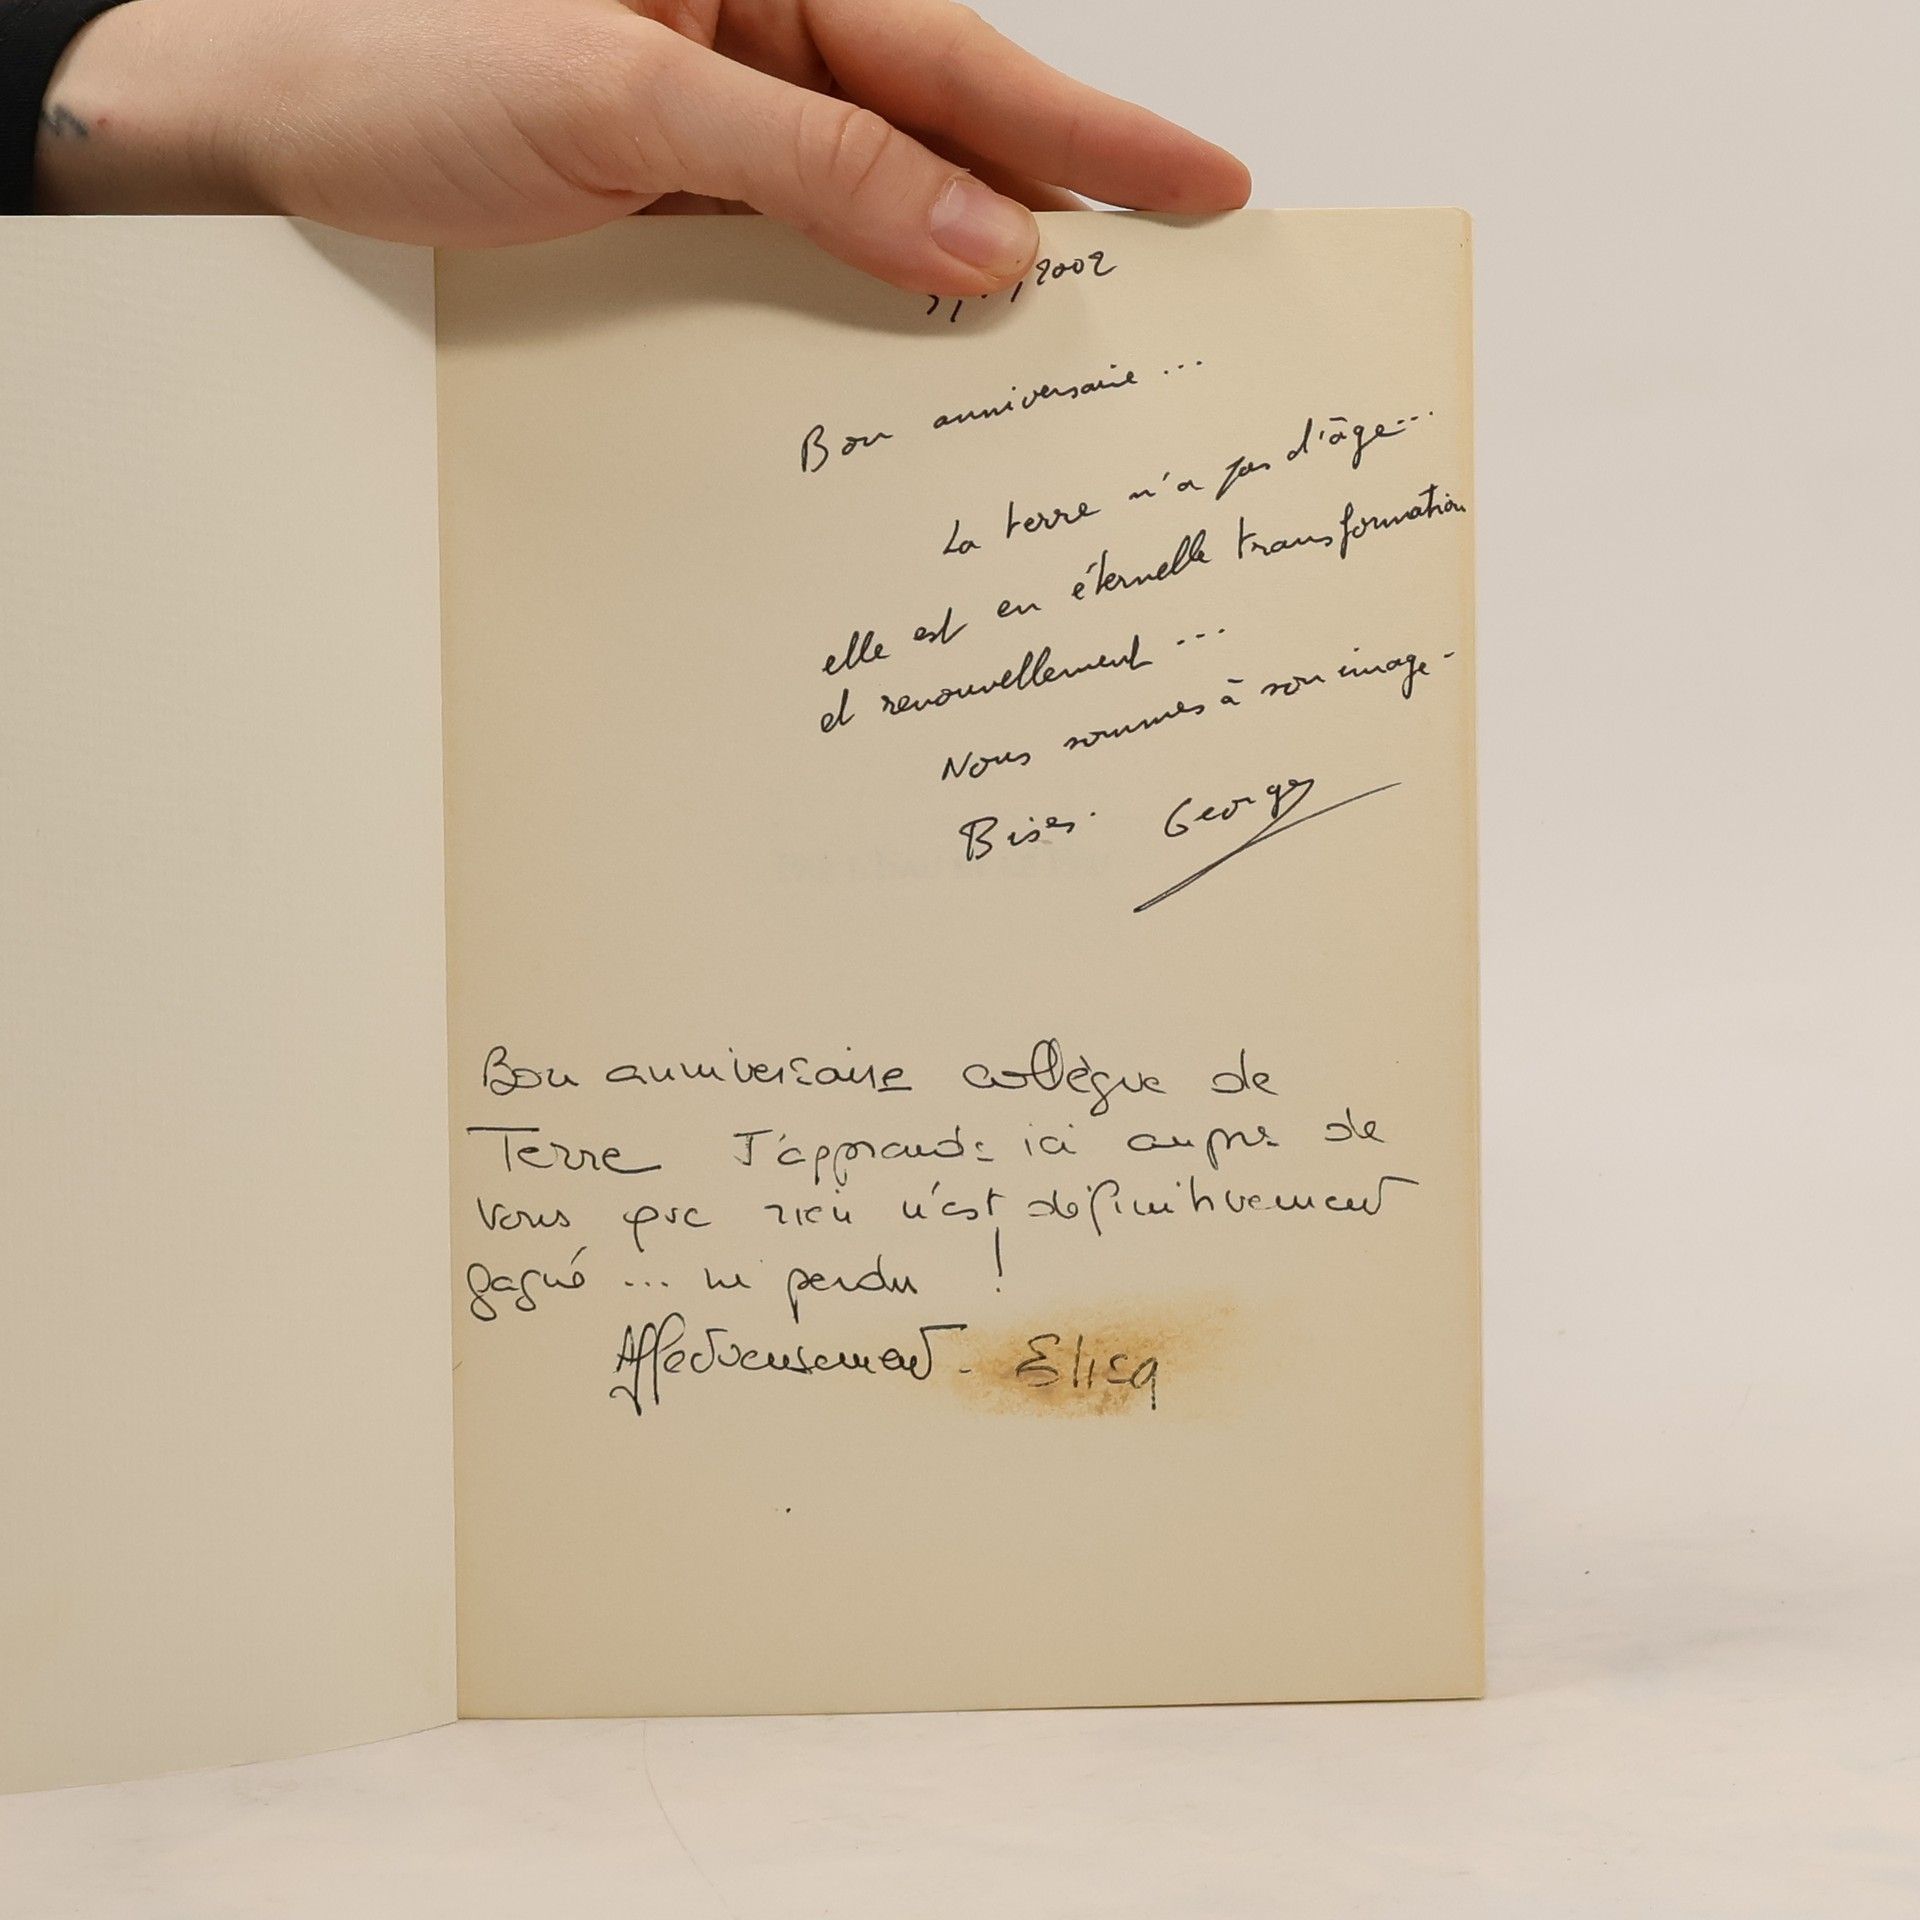 2002
Bon anniversaire ...
La terre n'a pas d'âge...
elle est en éternelle transformation
et renouvellement ...
Nous sommes à son image -
Bises. Georges
Bon anniversaire collègue de
Terre J'apprends ici auprès de
vous que rien n'est définitivement
gagné ... ni perdu !
Affectueusement - Elisa